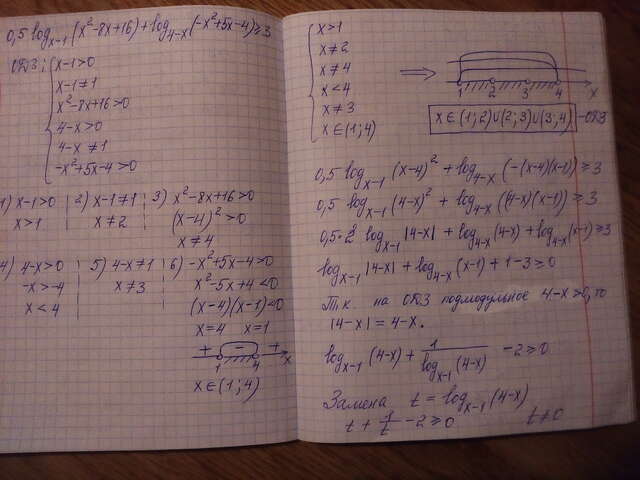 0,5 log_{x-1}(x²-8x+16)+log_{4-x}(-x²+5x-4)≥3
ОДЗ:
x-1>0
x-1≠1
x²-8x+16>0
4-x>0
4-x≠1
-x²+5x-4>0
1) x-1>0
x>1
2) x-1≠1
x≠2
3) x²-8x+16>0
(x-4)²>0
x≠4
4) 4-x>0
-x>-4
x<4
5) 4-x≠1
x≠3
6) -x²+5x-4>0
x²-5x+4<0
(x-4)(x-1)<0
x=4 x=1
+ - +
1 4 x
x∈(1;4)
x>1
x≠2
x≠4
x<4
x≠3
x∈(1;4)
⟹
1 2 3 4 x
x∈(1;2)∪(2;3)∪(3;4) -ОДЗ
0,5 log_{x-1}(x-4)² + log_{4-x}(-(x-4)(x-1))≥3
0,5 log_{x-1}(4-x)² + log_{4-x}((4-x)(x-1))≥3
0,5·2 log_{x-1}|4-x| + log_{4-x}(4-x)+log_{4-x}(x-1)≥3
log_{x-1}|4-x| + log_{4-x}(x-1)+1-3≥0
Т.к. на ОДЗ подмодульное 4-x>0, то
|4-x| = 4-x.
log_{x-1}(4-x) + 1/log_{x-1}(4-x) -2≥0
Замена t=log_{x-1}(4-x)
t + 1/t -2≥0 t≠0